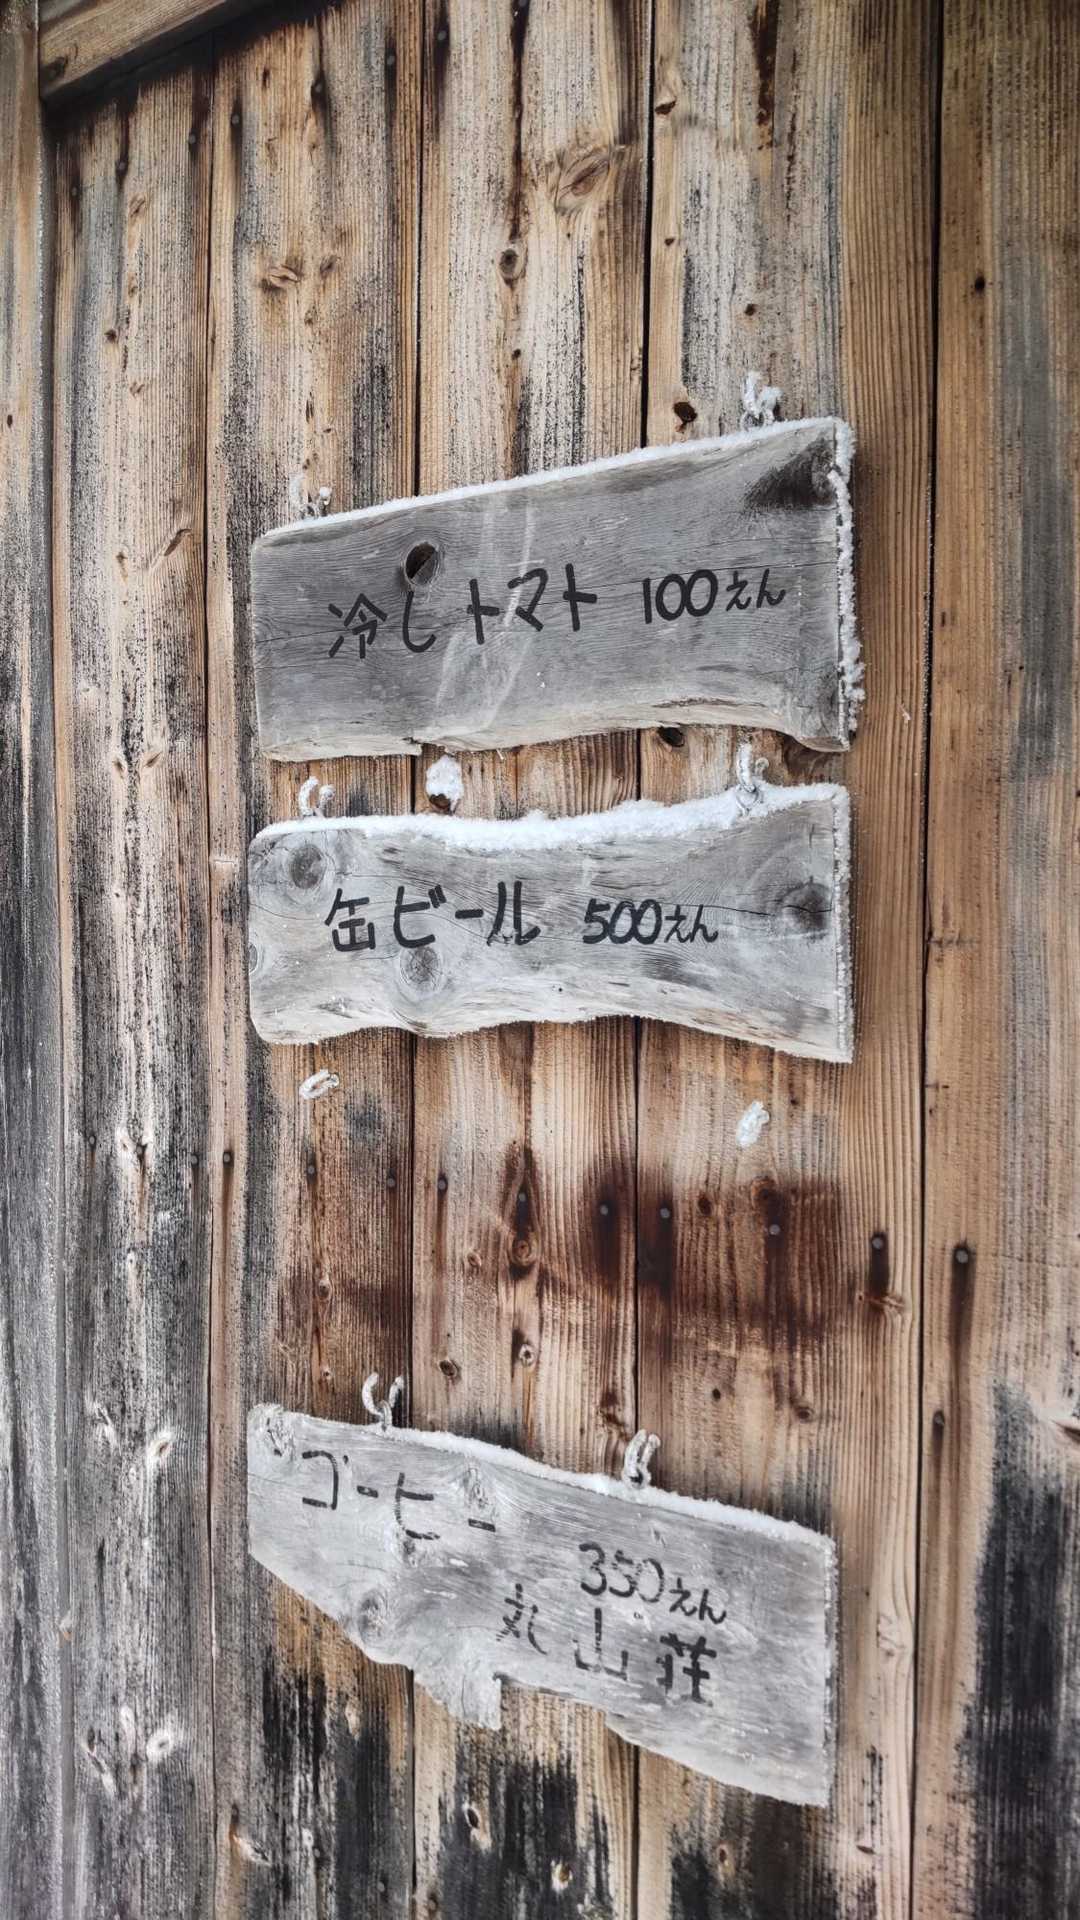 冷しトマト 100えん
缶ビール 500えん
コーヒー
350えん
丸山荘